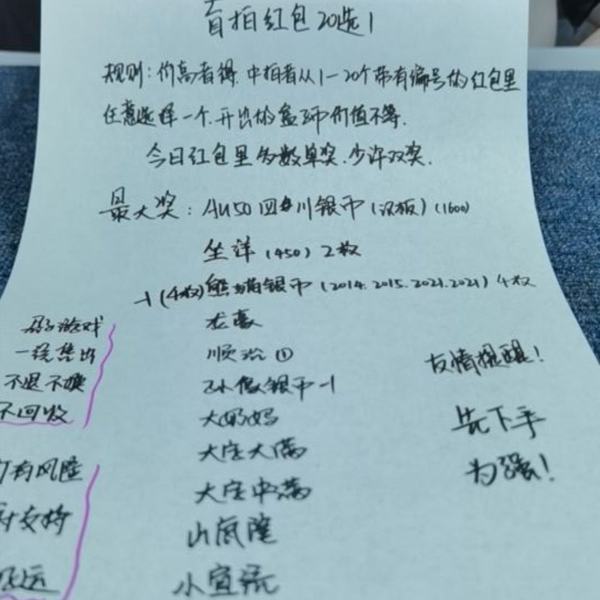 盲拍红包20选1
规则:价高者得.中拍者从1—20个带有编号的红包里
任意选择一个.开出的盒子币价值不等.
今日红包里多数单奖.少许双奖.
最大奖:AU50四川银币(汉板)(1600)
坐洋(450)2枚
-1(4枚)熊猫银币(2014.2015.2021.2021)4枚
龙豪
顺治①
孙像银币-1
大奶妈
大定大满
大定中满
小宣和
游戏
一经售出
不退不换
不回收
有风险
支持
好运
友情提醒!
先下手
为强!